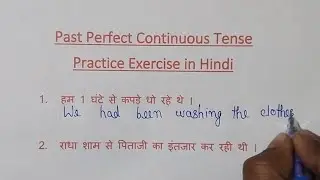 Past Perfect Continuous Tense
Practice Exercise in Hindi
1. हम 1 घंटे से कपड़े धो रहे थे ।
We had been washing the clothes
2. राधा शाम से पिताजी का इंतजार कर रही थी ।